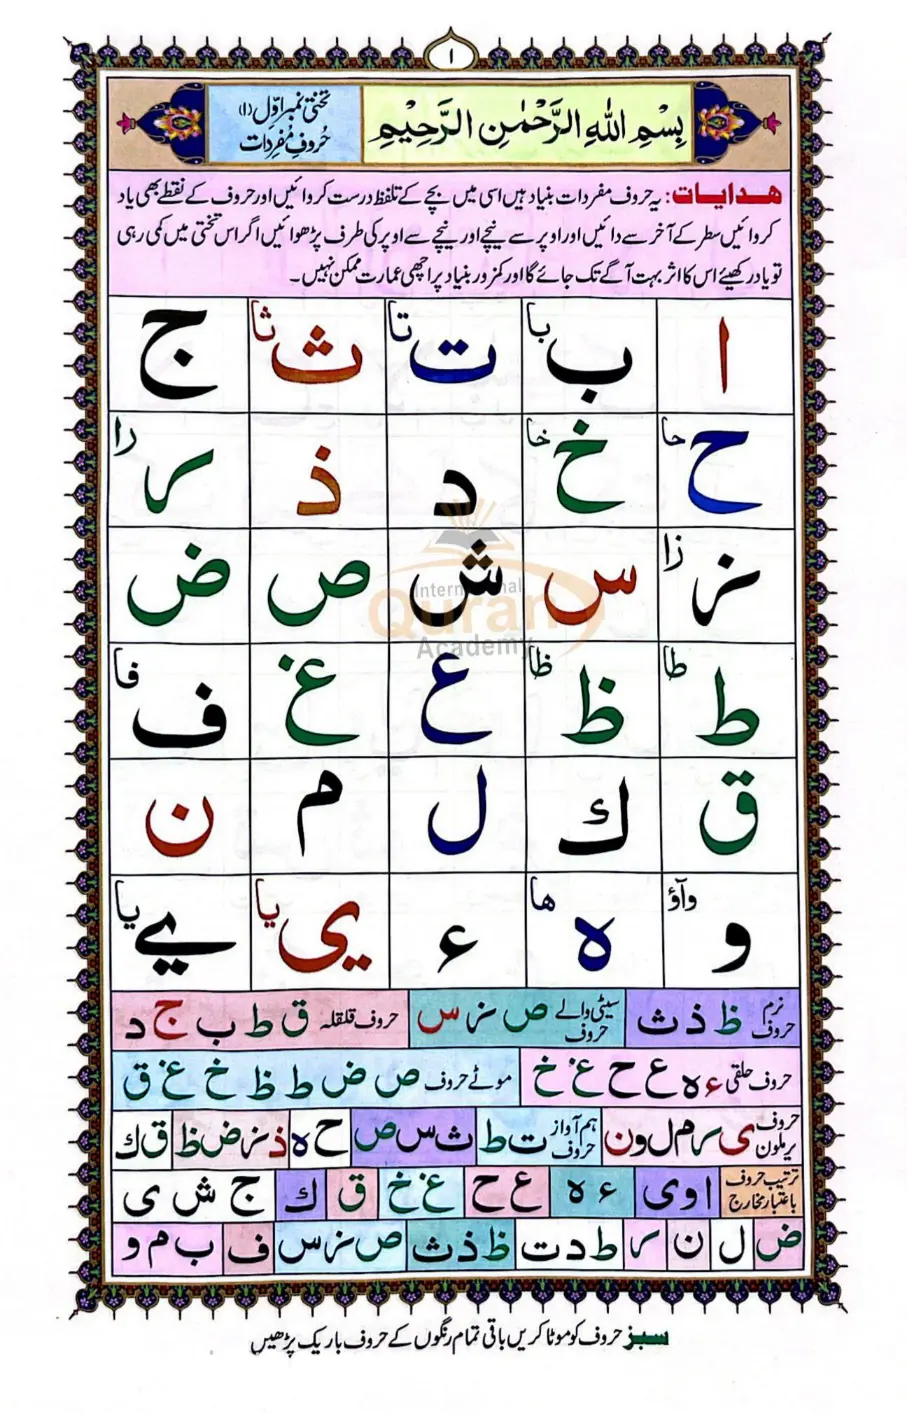 ١
بِسْمِ اللهِ الرَّحْمٰنِ الرَّحِيْمِ
تختی نمبر اوّل (۱)
حُروفِ مُفردات
ھدایات: یہ حروف مفردات بنیاد ہیں اسی میں بچے کے تلفظ درست کروائیں اور حروف کے نقطے بھی یاد
کروائیں سطر کے آخر سے دائیں اور اوپر سے نیچے اور نیچے سے اوپر کی طرف پڑھوائیں اگر اس تختی میں کمی رہی
تو یاد رکھیئے اس کا اثر بہت آگے تک جائے گا اور کمزور بنیاد پر اچھی عمارت ممکن نہیں۔
ا ب با ت تا ث ثا ج
ح حا خ خا د ذ ر را
ز زا س ش ص ض
ط طا ظ ظا ع غ ف فا
ق ك ل م ن
و وآؤ ه ها ء ی یا ے یا
نرم حروف ظ ذ ث سیٹی والے حروف ص ز س حروف قلقلہ ق ط ب ج د
حروف حلقی ء ه ع ح غ خ موٹے حروف ص ض ط ظ خ غ ق
حروف یرملون ی ر م ل و ن ہم آواز حروف ت ط ث س ص ح ه ذ ز ض ظ ق ك
ترتیب حروف باعتبار مخارج ا و ی ء ه ع ح غ خ ق ك ج ش ی
ض ل ن ر ط د ت ظ ذ ث ص ز س ف ب م و
سبز حروف کو موٹا کریں باقی تمام رنگوں کے حروف باریک پڑھیں
International
Quran
Academy